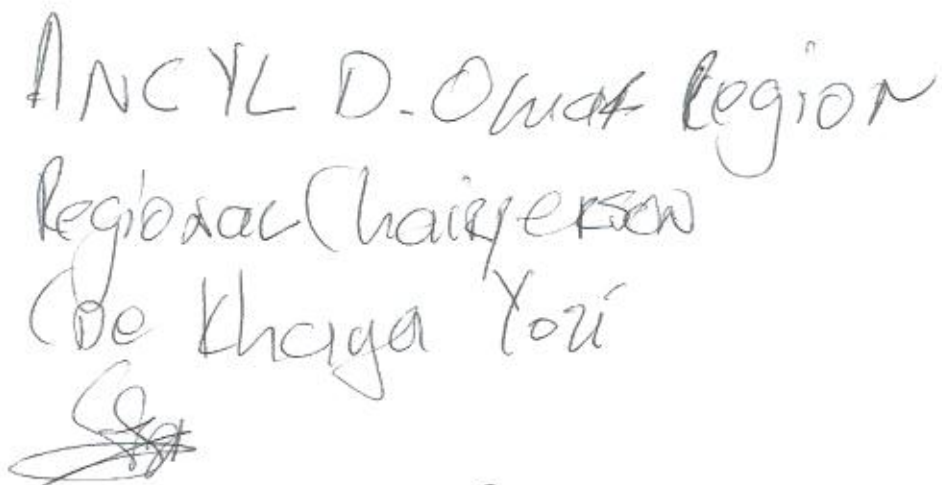 ANCYL D. Omar Region
Regional Chairperson
Cde Khaya Yozi